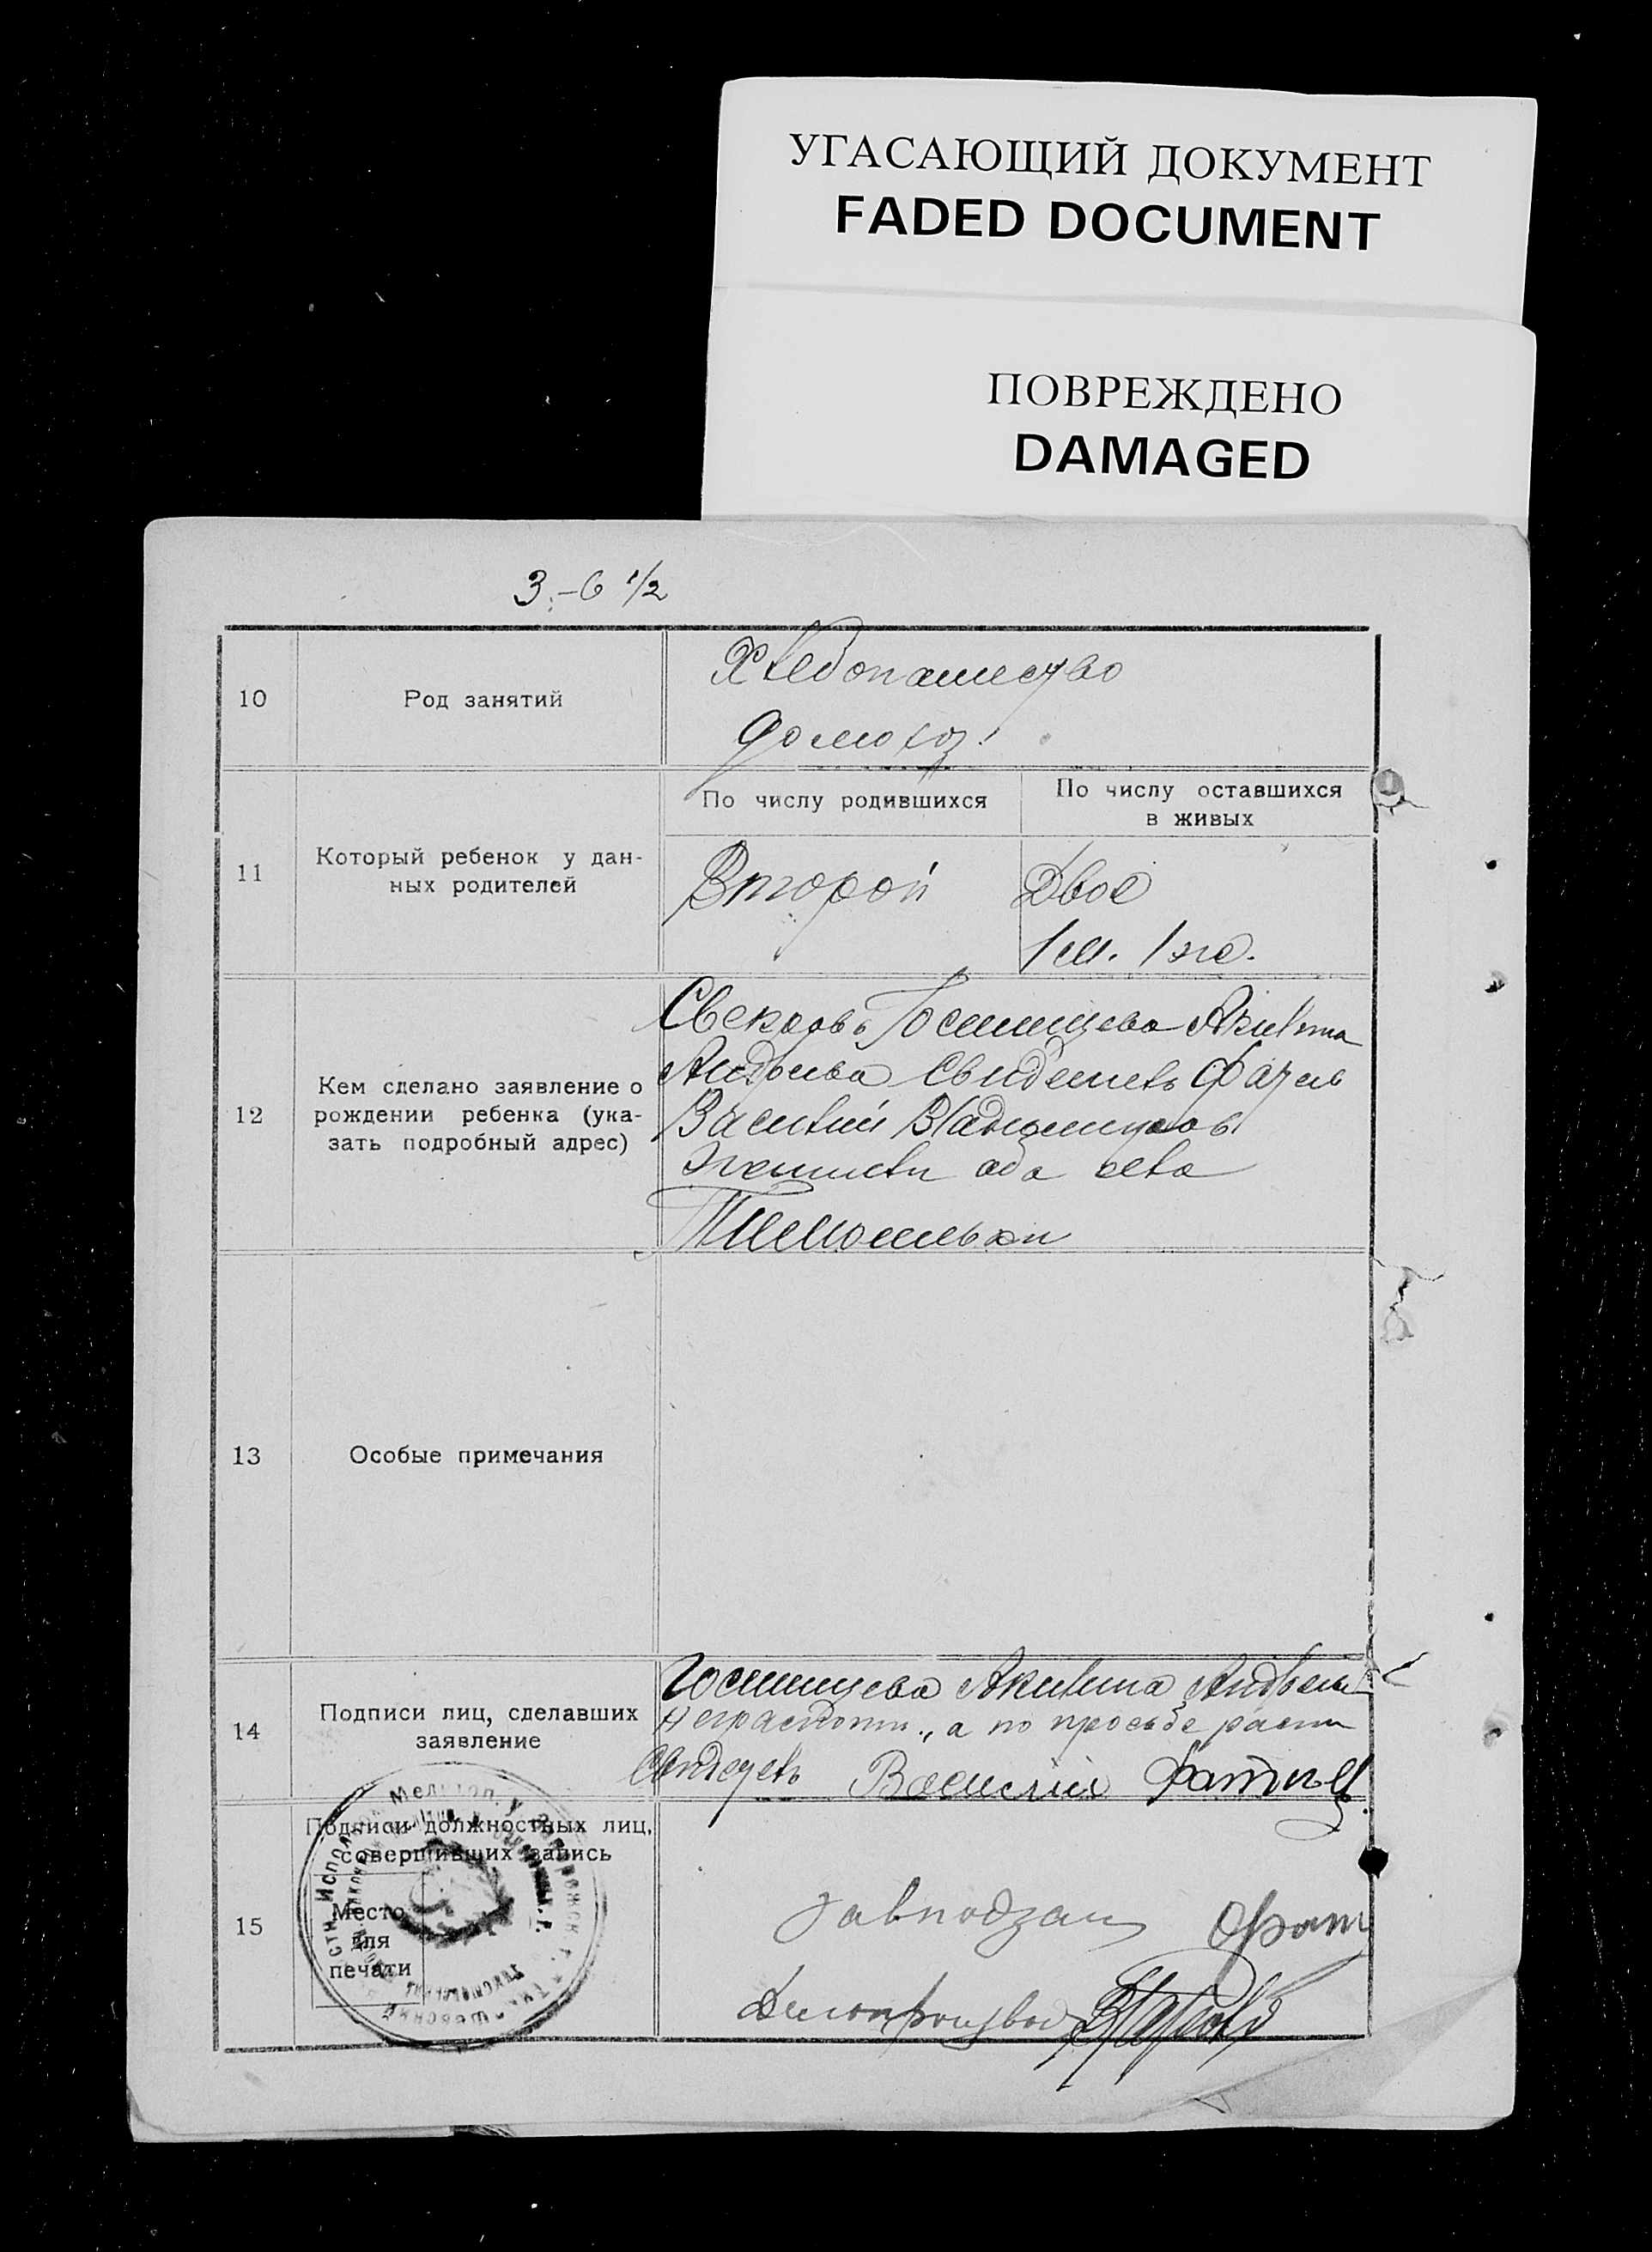 УГАСАЮЩИЙ ДОКУМЕНТ
FADED DOCUMENT
ПОВРЕЖДЕНО
DAMAGED
3.-6 1/2
10
Род занятий
Хлебопашество
домохоз.
11
Который ребенок у дан-
ных родителей
По числу родившихся
По числу оставшихся
в живых
Второй
Двое
1 м. 1 же.
12
Кем сделано заявление о
рождении ребенка (ука-
зать подробный адрес)
Свекровь Гостищева Акилина
Андреева свидетель
Василий
жители оба села
Тимошевки
13
Особые примечания
14
Подписи лиц, сделавших
заявление
Гостищева Акилина
Неграмотн., а по просьбе
Свидетель Василий
15
Подписи должностных лиц,
совершивших запись
Место
для
печати
Завподзаг
Делопроизвод